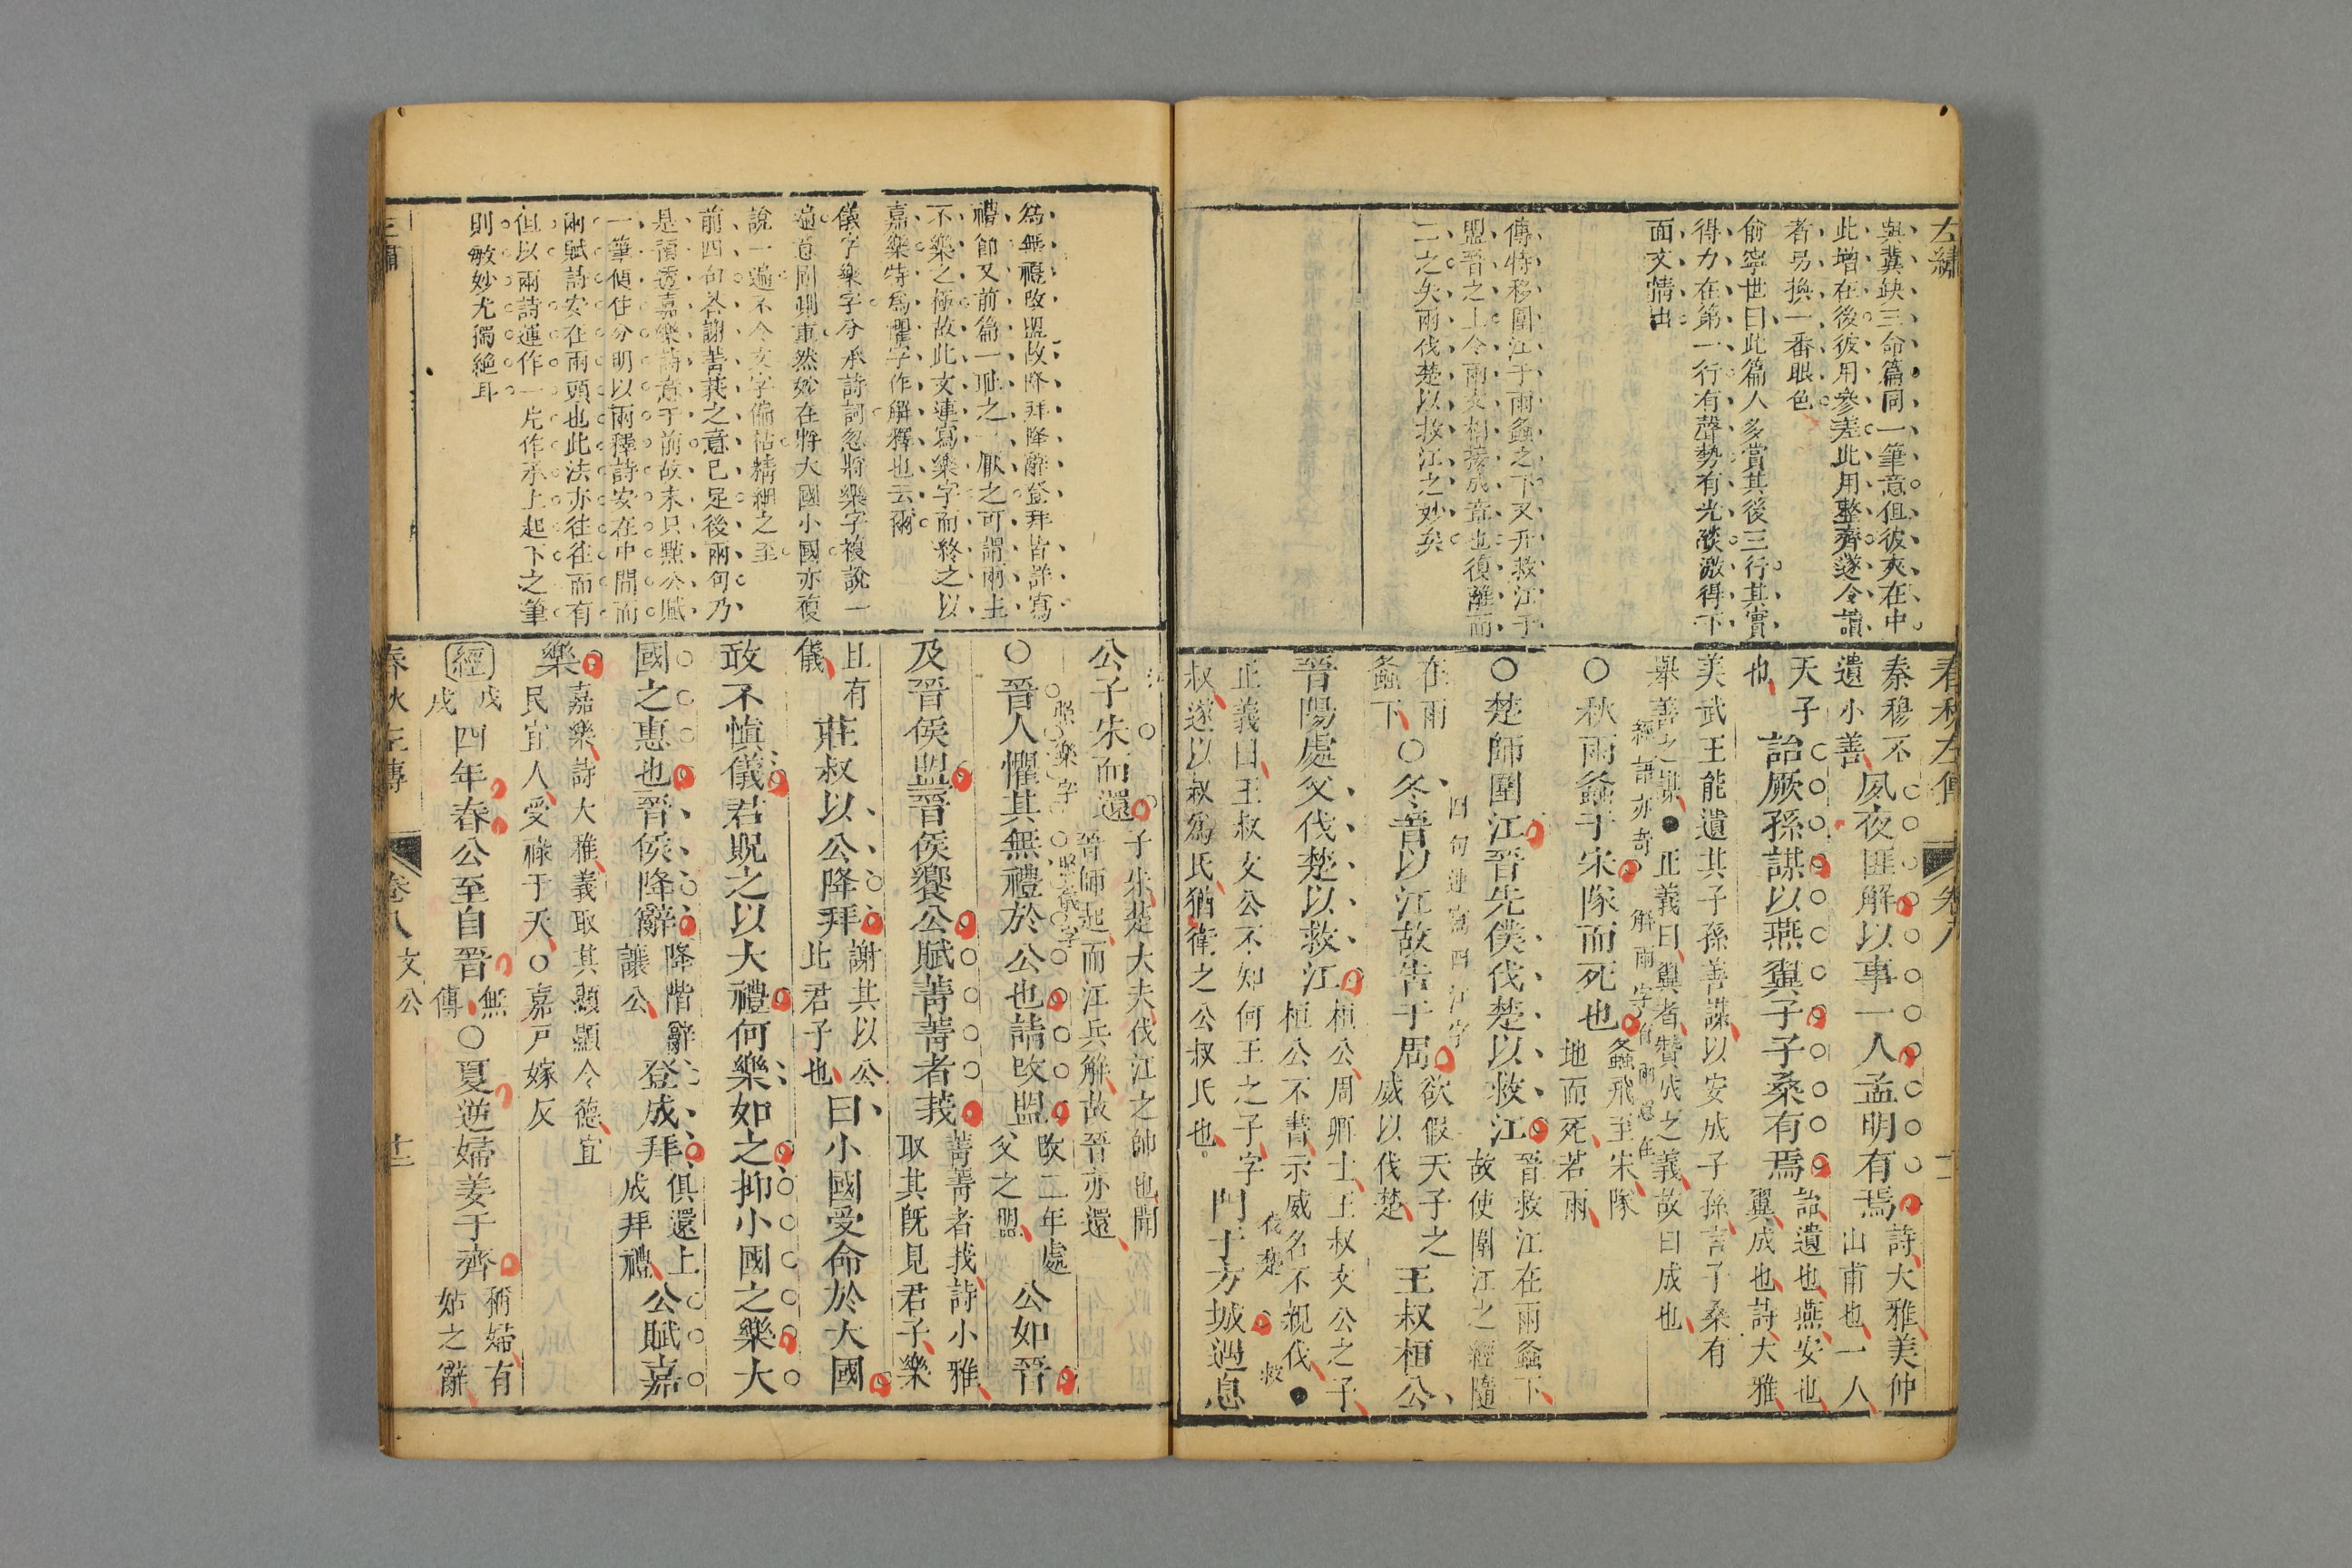 左繡
與冀缺三命篇同一筆意但彼夾在中
此增在後彼用參差此用整齊遂令讀
者另換一番眼色
俞寧世曰此篇人多賞其後三行其實
得力在第一行有聲勢有光燄激得下
面文情出
傳特移圍江于雨螽之下又升救江于
盟晉之上令兩文相接成章也復離而
二之矣兩伐楚以救江之妙矣
春秋左傳 卷八
秦穆不
遺小善
夙夜匪解以事一人孟明有焉
詩大雅美仲
山甫也一人
天子
也
詒厥孫謀以燕翼子子桑有焉
詒遺也燕安也
翼成也詩大雅
美武王能遺其子孫善謀以安成子孫言子桑有
舉善之謀●正義曰翼者贊成之義故曰成也
經語亦奇
解雨字
○秋雨螽于宋隊而死也
螽飛至宋隊
地而死若雨
○楚師圍江晉先僕伐楚以救江
晉救江在雨螽下
故使圍江之經隨
在雨
螽下
四句連寫四江字
○冬晉以江故告于周
欲假天子之
威以伐楚
王叔桓公
晉陽處父伐楚以救江
桓公周卿士王叔文公之子
桓公不書示威名不親伐●
正義曰王叔文公不知何王之子字
叔遂以叔爲氏猶衛之公叔氏也
伐楚
救
門于方城遇息
爲無禮改盟故降拜降辭登拜皆詳寫
禮節又前篇一恥之一厭之可謂兩主
不樂之極故此文連寫樂字而終之以
嘉樂特爲懼字作解釋也云爾
儀字樂字分承詩詞忽將樂字複說一
遍意園則重然妙在將大國小國亦複
說一遍不令文字偏枯精細之至
前四句答謝菁莪之意已足後兩句乃
是預透嘉樂詩意于前故末只點公賦
一筆偵住分明以兩釋詩安在中間而
兩賦詩安在兩頭也此法亦往往而有
但以兩詩運作一片作承上起下之筆
則敏妙尤獨絕耳
公子朱而還
子朱楚大夫伐江之帥也聞
晉師起而江兵解故晉亦還
照樂字
照儀字
○晉人懼其無禮於公也請改盟
改二年處
父之盟
公如晉
及晉侯盟晉侯饗公賦菁菁者莪
菁菁者莪詩小雅
取其旣見君子樂
且有
儀
莊叔以公降拜
謝其以公
此君子也
曰小國受命於大國
敢不愼儀君貺之以大禮何樂如之抑小國之樂大
國之惠也晉侯降辭
降階辭
讓公
登成拜
俱還上
成拜禮
公賦嘉
樂
嘉樂詩大雅義取其顯顯令德宜
民宜人受祿于天○嘉戸嫁反
經
戊
戌
四年春公至自晉
無
傳
○夏逆婦姜于齊
稱婦有
姑之辭
春秋左傳 卷八
文公